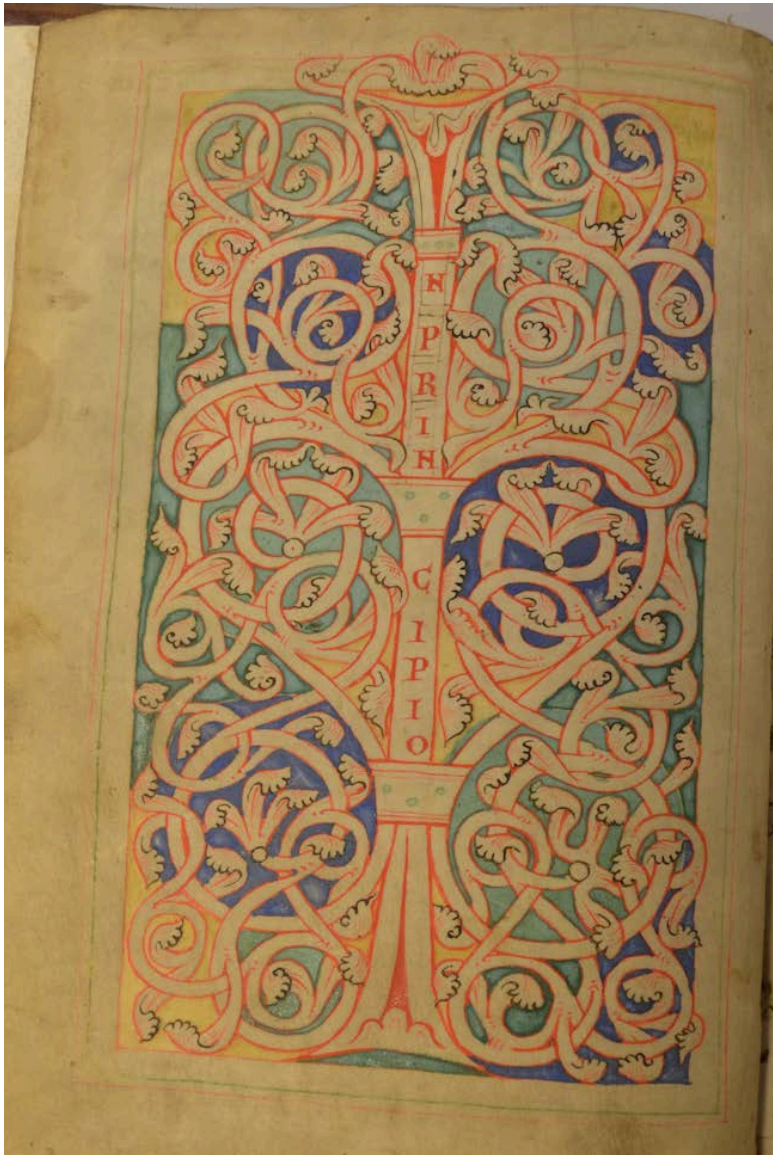 INPRIN
CIPIO